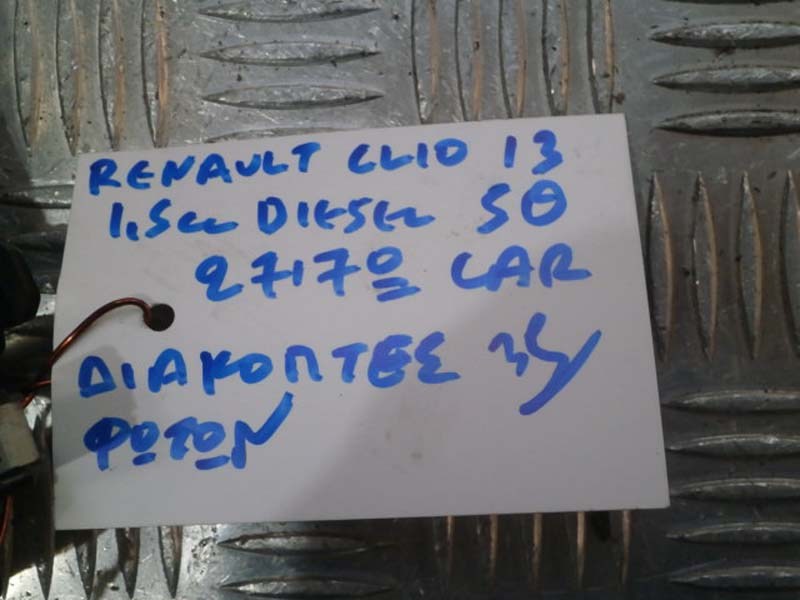 RENAULT CLIO 13
1,5cc DIESEL 5Θ
2717º CAR
ΔΙΑΚΟΠΤΕΣ
ΦΩΤΩΝ